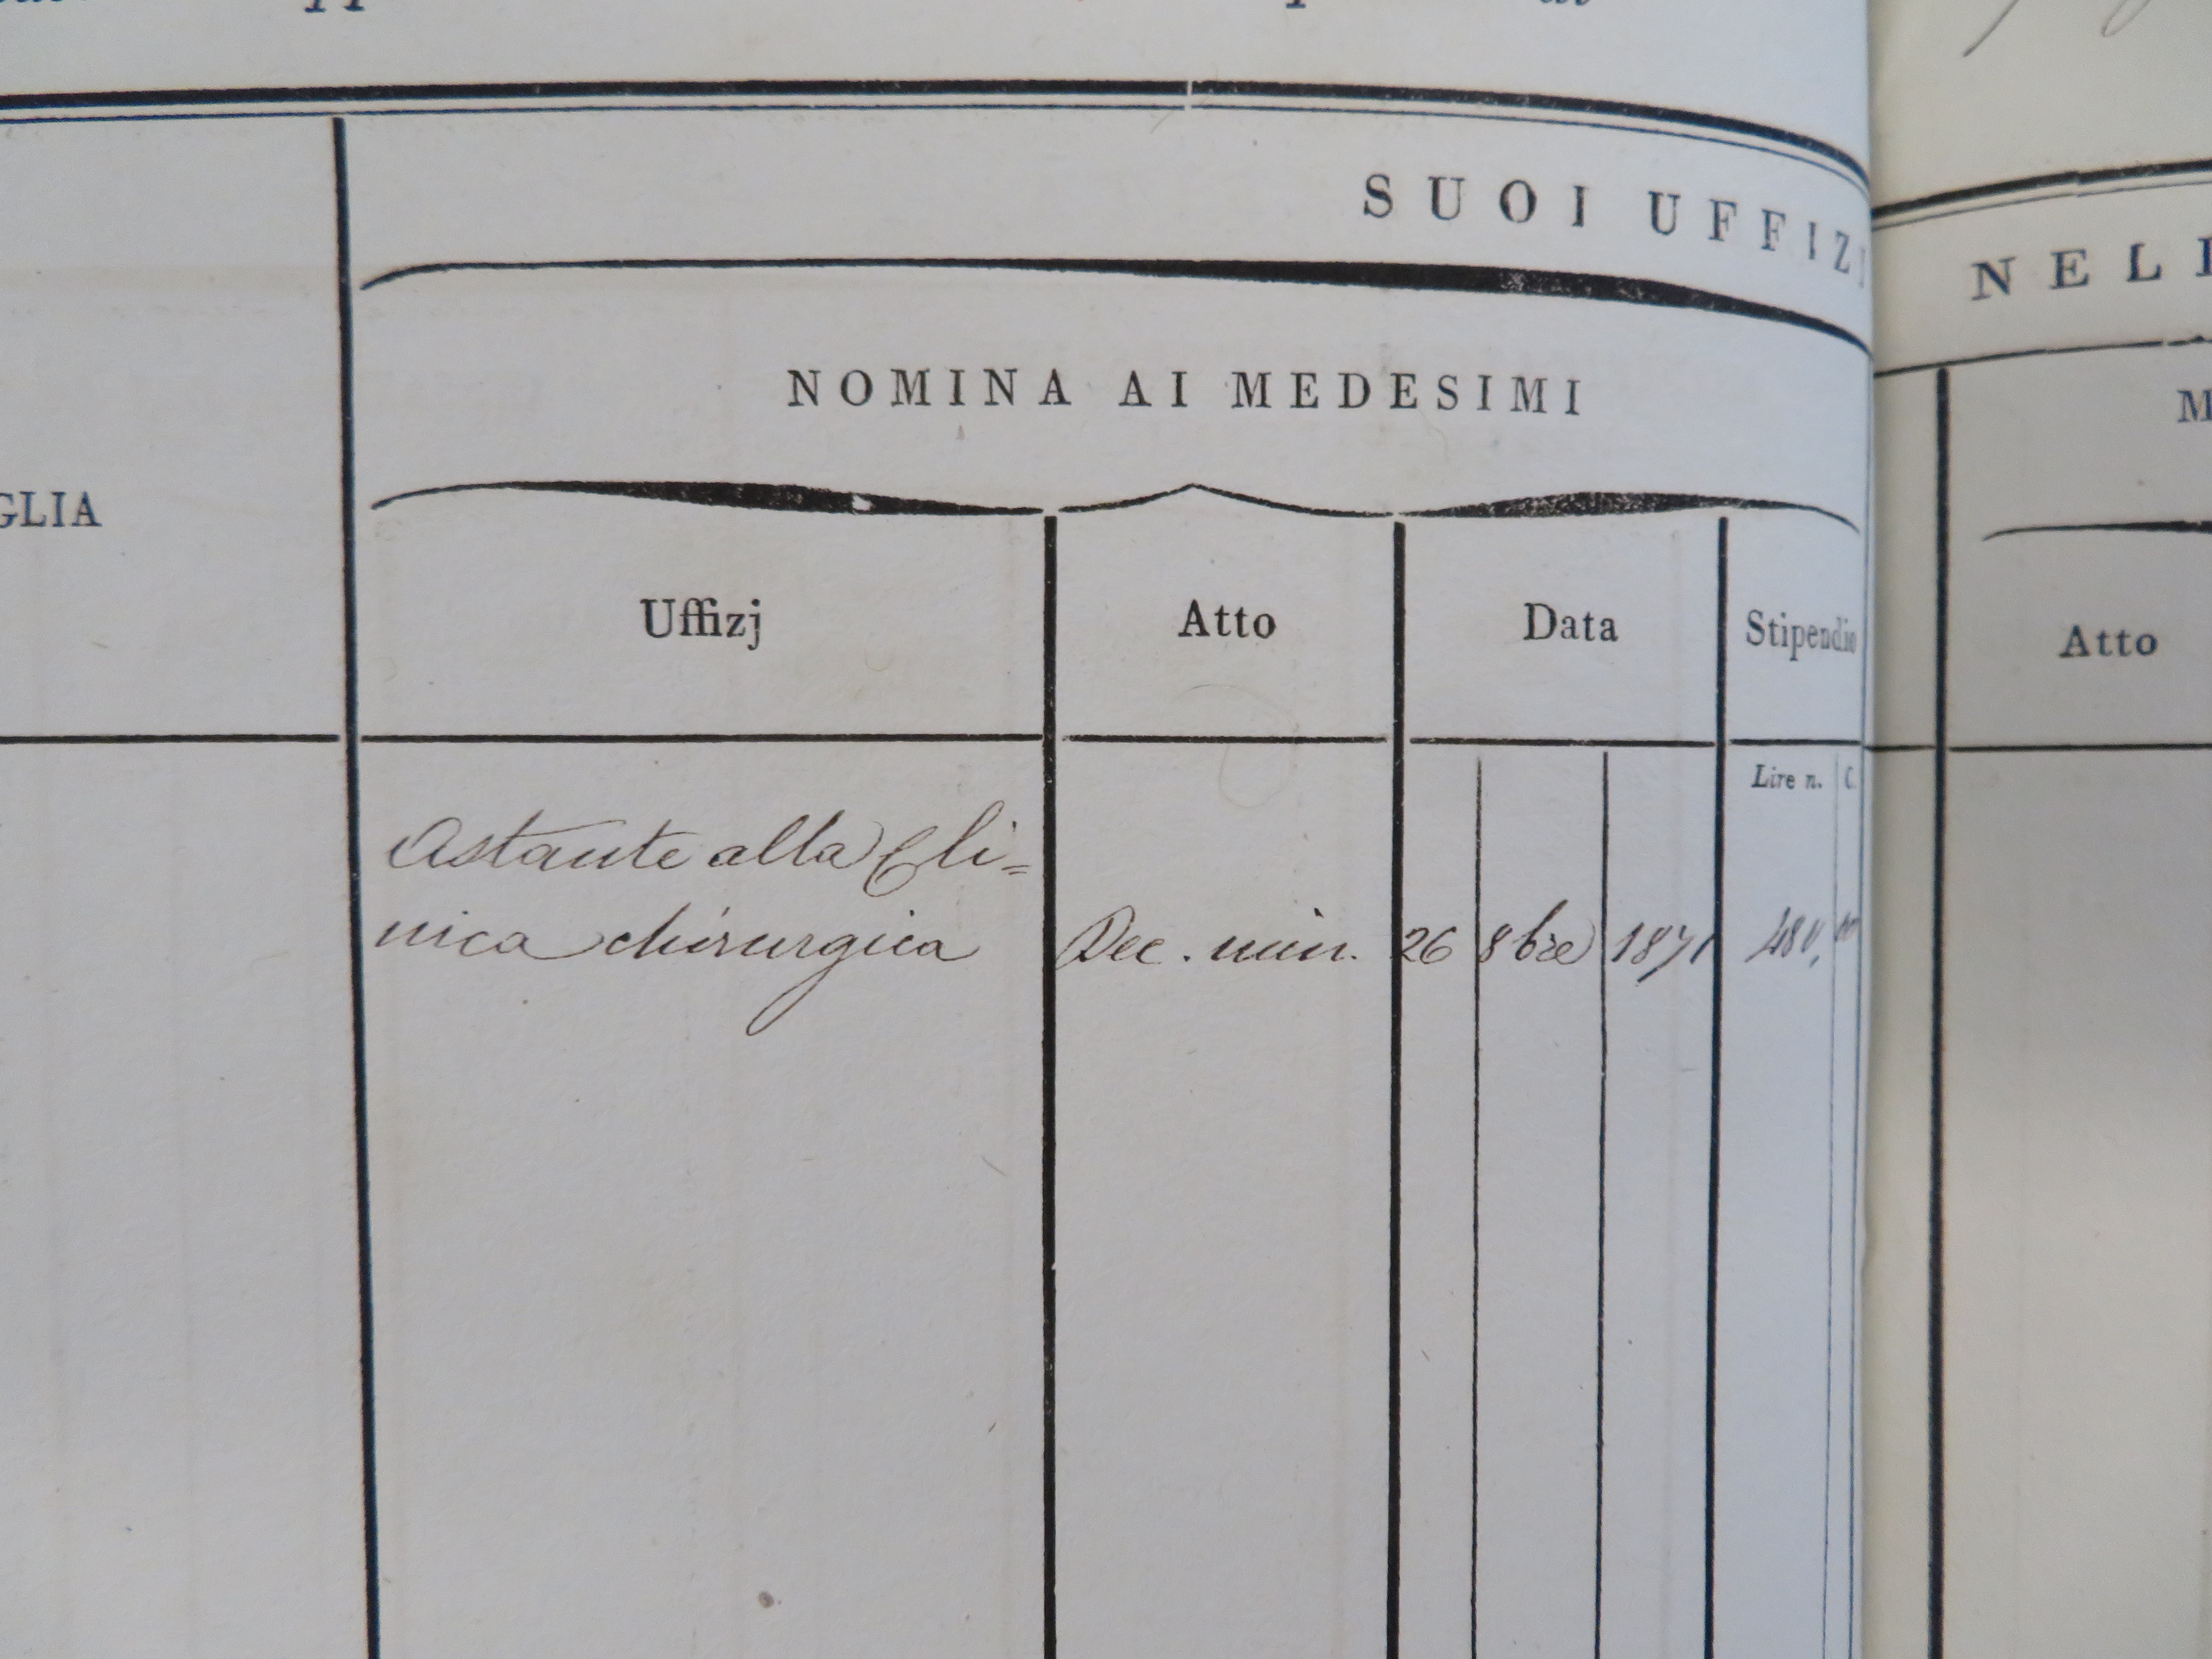 SUOI UFFIZJ
NELL
NOMINA AI MEDESIMI
GLIA
Uffizj
Atto
Data
Stipendio
Atto
Lire n. C.
Astante alla Cli=
nica chirurgica
Dec. min.
26 8bre 1871
480, 00